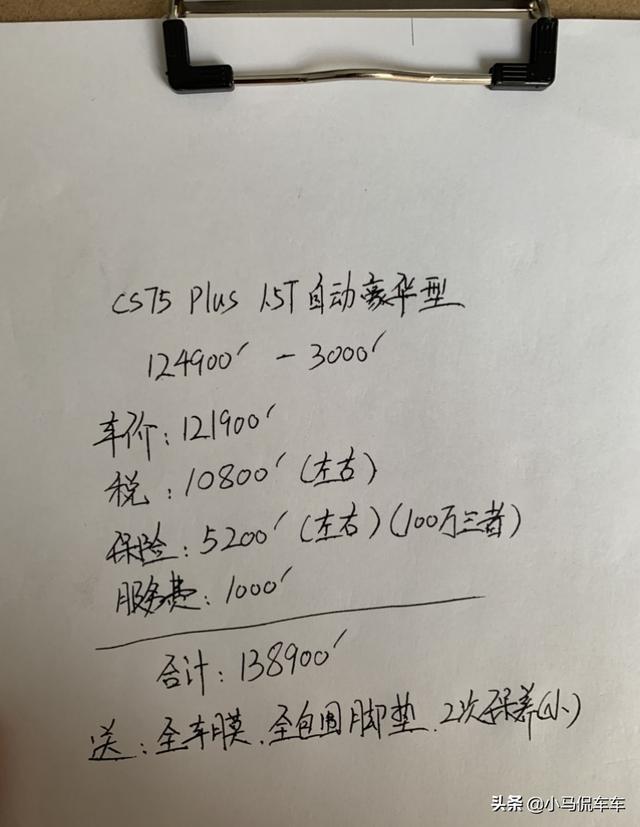 CS75 Plus 1.5T自动豪华型
124900' - 3000'
车价：121900'
税：10800'（左右）
保险：5200'（左右）（100万三者）
服务费：1000'
合计：138900'
送：全车膜、全包围脚垫、2次保养(小)
头条 @小马侃车车